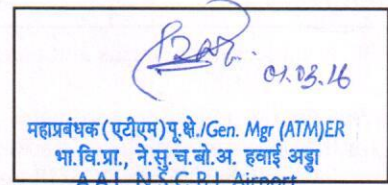 01.03.16
महाप्रबंधक (एटीएम) पू.क्षे./Gen. Mgr (ATM)ER
भा.वि.प्रा., ने.सु.च.बो.अ. हवाई अड्डा
A.A.I., N.S.C.B.I. Airport